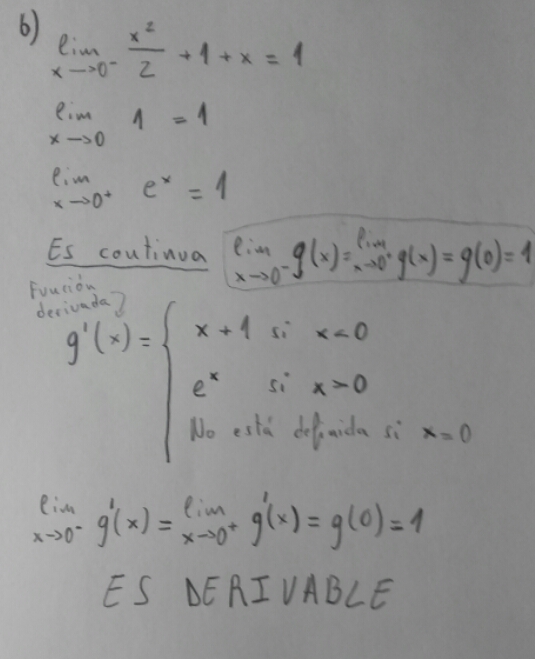 b) lim x→0⁻ x²/2 + 1 + x = 1
lim x→0 1 = 1
lim x→0⁺ eˣ = 1
Es continua lim x→0⁻ g(x) = lim x→0⁺ g(x) = g(0) = 1
Función
derivada
g'(x) = { x + 1 si x < 0
eˣ si x > 0
No está definida si x = 0
lim x→0⁻ g'(x) = lim x→0⁺ g'(x) = g(0) = 1
ES DERIVABLE